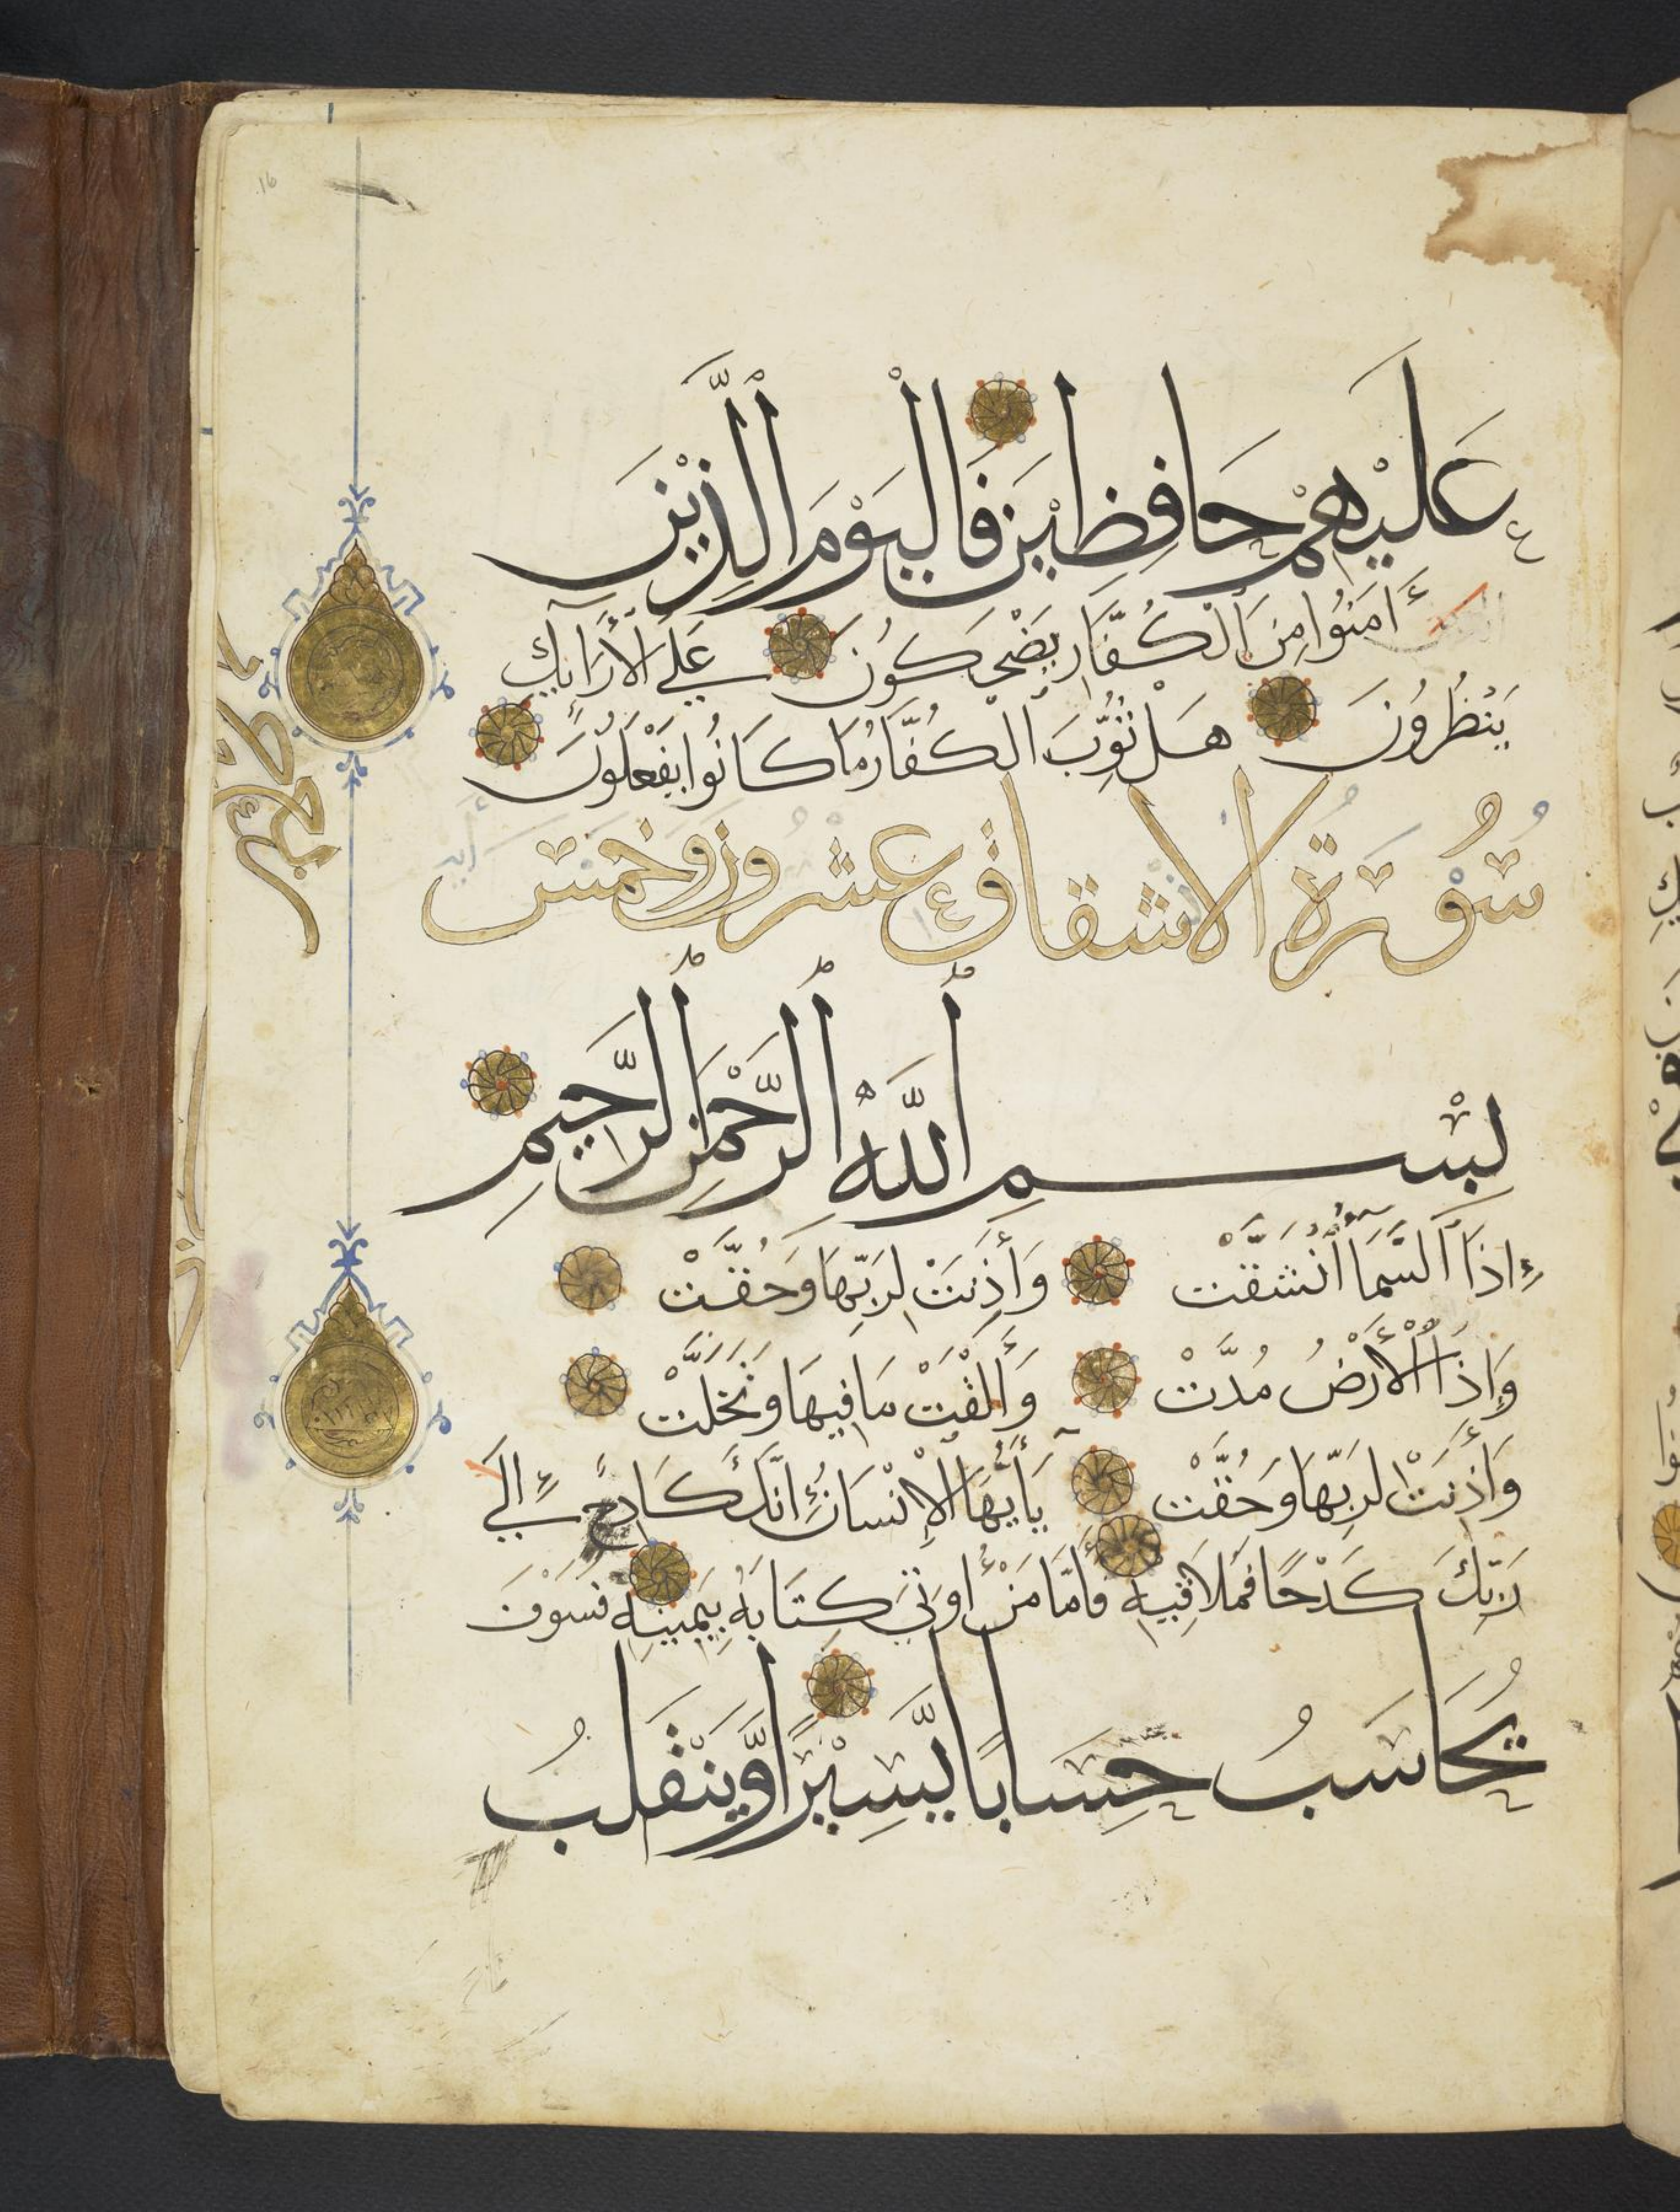 عَلَيْهِمْ حَافِظِيْنَ فَالْيَوْمَ الَّذِيْنَ
ءَامَنُوا مِنَ الْكُفَّارِ يَضْحَكُونَ عَلَى الْأَرَآئِكِ
يَنْظُرُونَ هَلْ ثُوِّبَ الْكُفَّارُ مَا كَانُوا يَفْعَلُونَ
سُوْرَةُ الانشقاق عشرون وخمس
آية
بِسْمِ اللَّهِ الرَّحْمَنِ الرَّحِيمِ
إِذَا السَّمَآءُ انْشَقَّتْ وَأَذِنَتْ لِرَبِّهَا وَحُقَّتْ
وَإِذَا الْأَرْضُ مُدَّتْ وَأَلْقَتْ مَا فِيهَا وَتَخَلَّتْ
وَأَذِنَتْ لِرَبِّهَا وَحُقَّتْ يَآأَيُّهَا الْإِنْسَانُ إِنَّكَ كَادِحٌ إِلَى
رَبِّكَ كَدْحًا فَمُلَاقِيهِ فَأَمَّا مَنْ أُوتِيَ كِتَابَهُ بِيَمِينِهِ فَسَوْفَ
يُحَاسَبُ حِسَابًا يَّسِيْرًا وَّيَنْقَلِبُ
16